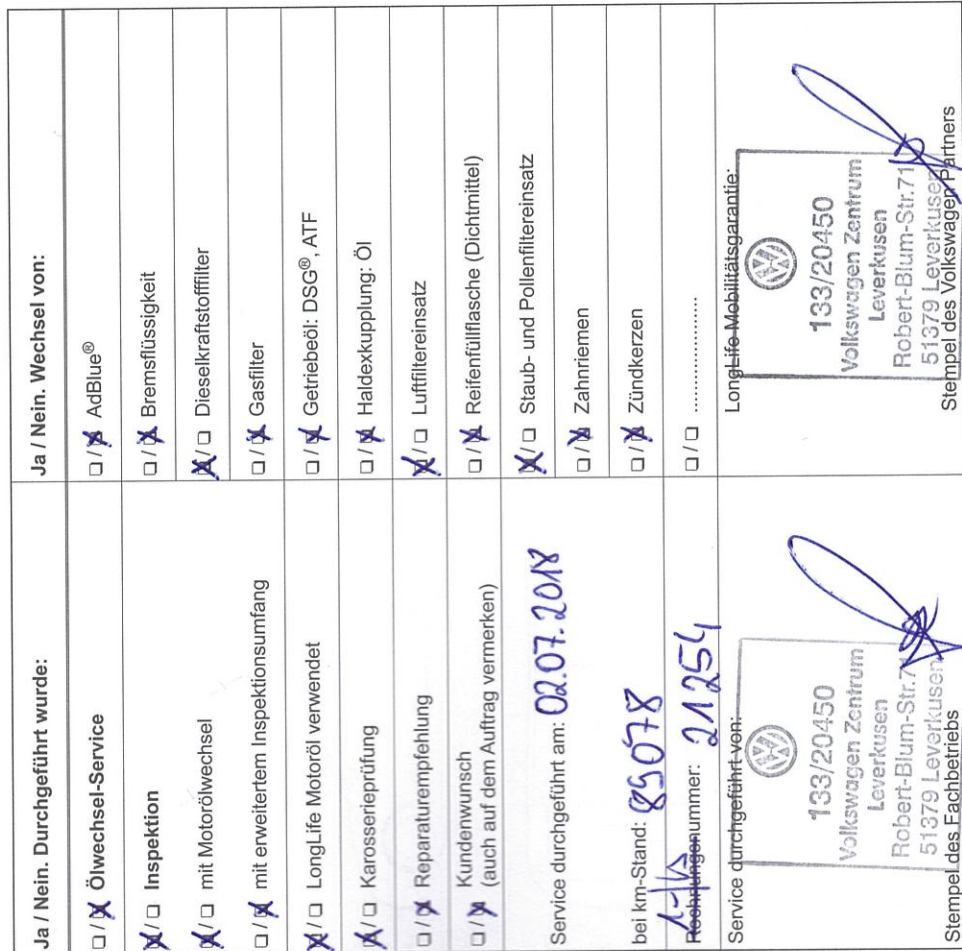 Ja / Nein. Durchgeführt wurde:
☐ / ☒ Ölwechsel-Service
☒ / ☐ Inspektion
☒ / ☐ mit Motorölwechsel
☐ / ☒ mit erweitertem Inspektionsumfang
☒ / ☐ LongLife Motoröl verwendet
☒ / ☐ Karosserieprüfung
☐ / ☒ Reparaturempfehlung
☐ / ☒ Kundenwunsch
(auch auf dem Auftrag vermerken)
Service durchgeführt am: 02.07.2018
bei km-Stand: 89078
Rechnungsnummer: 21254
Service durchgeführt von:
133/20450
Volkswagen Zentrum
Leverkusen
Robert-Blum-Str.71
51379 Leverkusen
Stempel des Fachbetriebs
Ja / Nein. Wechsel von:
☐ / ☒ AdBlue®
☐ / ☒ Bremsflüssigkeit
☒ / ☐ Dieselkraftstofffilter
☐ / ☒ Gasfilter
☐ / ☒ Getriebeöl: DSG®, ATF
☐ / ☒ Haldexkupplung: Öl
☒ / ☐ Luftfiltereinsatz
☐ / ☒ Reifenfüllflasche (Dichtmittel)
☒ / ☐ Staub- und Pollenfiltereinsatz
☐ / ☒ Zahnriemen
☐ / ☒ Zündkerzen
☐ / ☐ ......................
LongLife Mobilitätsgarantie:
133/20450
Volkswagen Zentrum
Leverkusen
Robert-Blum-Str.71
51379 Leverkusen
Stempel des Volkswagen Partners